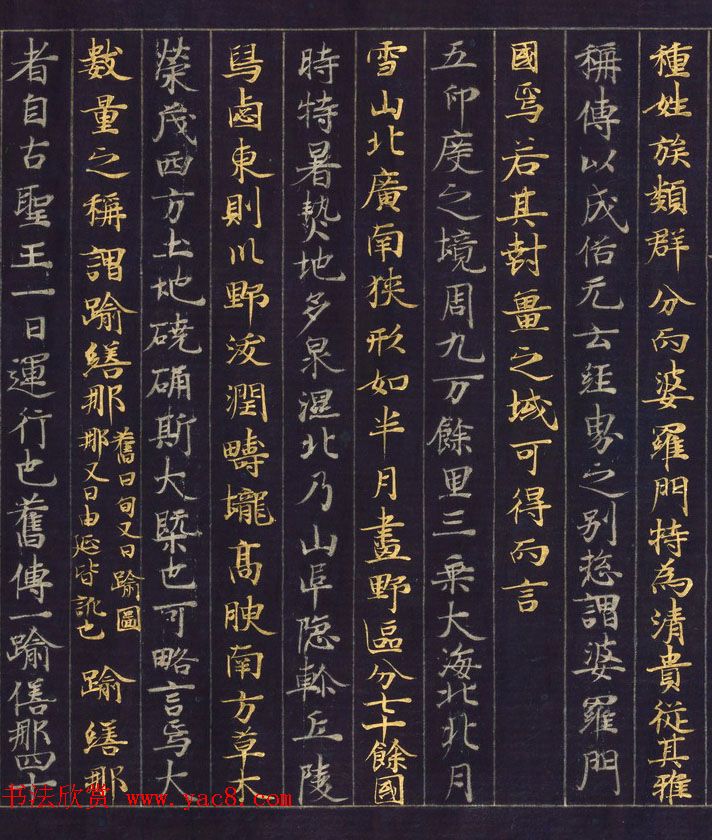 種姓族類群分而婆羅門特為清貴從其雅
稱傳以成俗元云經界之別惣謂婆羅門
國焉若其封畺之域可得而言
五印度之境周九万餘里三乗大海北北月
雪山北廣南狹形如半月畫野區分七十餘國
時特暑熱地多泉濕北乃山阜隐軫丘陵
舄鹵東則川野沃潤疇壠髙腴南方草木
榮茂西方土地磽确斯大槩也可略言焉大
數量之稱謂踰繕那
舊曰旬又曰踰闍
那又曰由延皆訛也
踰繕那
者自古聖王一日運行也舊傳一踰僐那四十
书法欣赏 www.yac8.com